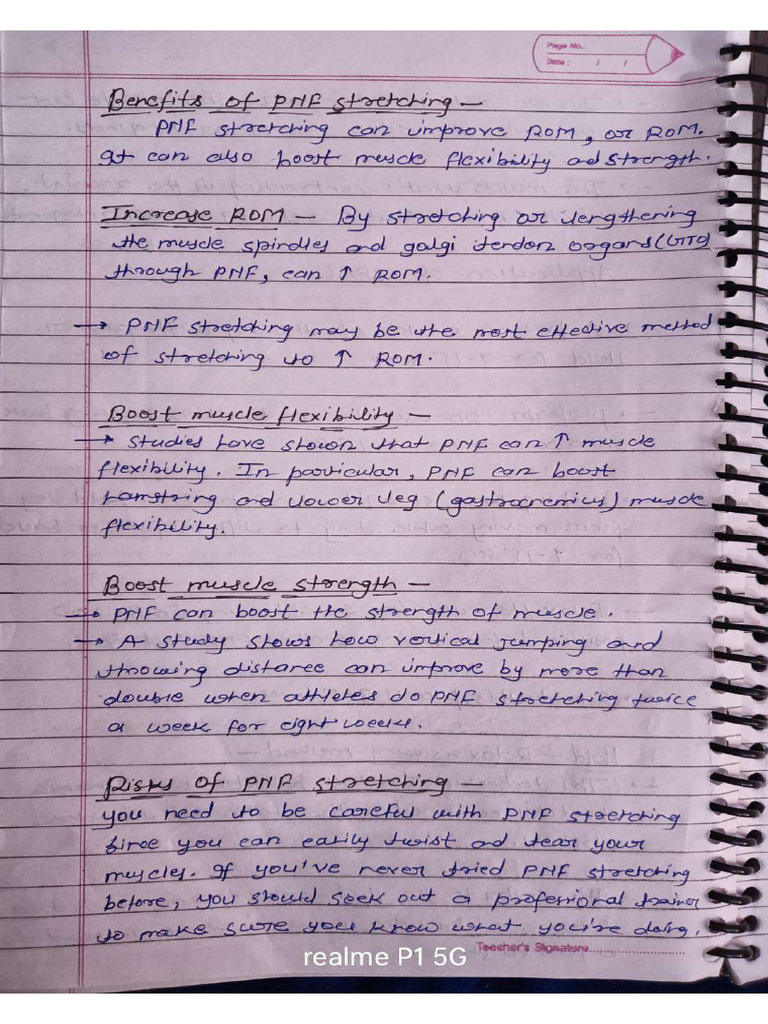 Page No.:
Date : / /
Benefits of PNF stretching —
PNF stretching can improve ROM, or ROM.
It can also boost muscle flexibility and strength.
Increase ROM — By stretching or lengthering
the muscle spindles and golgi tendon organs (GTO)
through PNF, can ↑ ROM.
→ PNF stretching may be the most effective method
of stretching to ↑ ROM.
Boost muscle flexibility —
→ Studies have shown that PNF can ↑ muscle
flexibility. In particular, PNF can boost
hamstring and lower leg (gastrocnemius) muscle
flexibility.
Boost muscle strength —
→ PNF can boost the strength of muscle.
→ A study shows how vertical jumping and
throwing distance can improve by more than
double when athletes do PNF stretching twice
a week for eight weeks.
Risks of PNF stretching —
you need to be careful with PNF stretching
since you can easily twist and tear your
muscles. If you've never tried PNF stretching
before, you should seek out a professional trainer
to make sure you know what you're doing.
Teacher's Signature
realme P1 5G